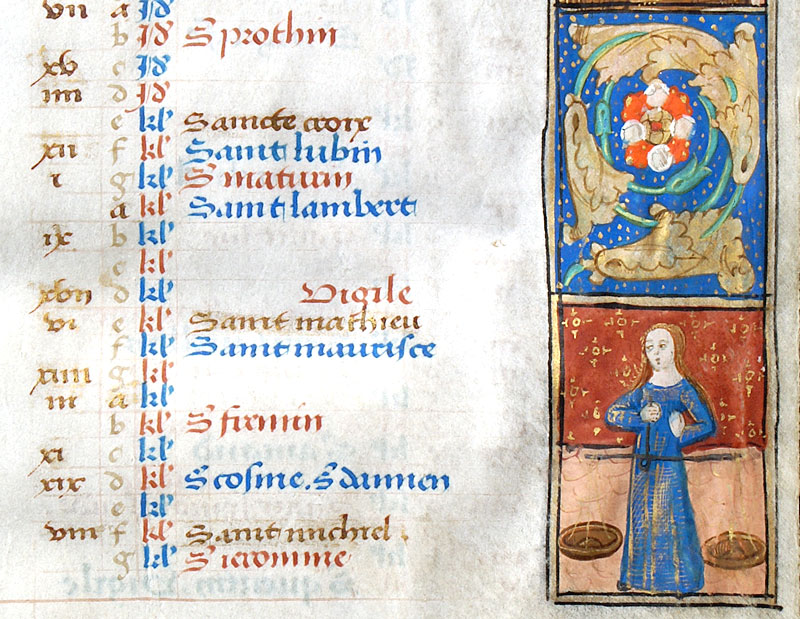 vii a Id
b Id S prothin
xv c Id
iiii d Id
e kl Saincte croix
xii f kl Saint lubin
i g kl S maturin
a kl Saint lambert
ix b kl
c kl
xvii d kl Vigile
vi e kl Saint mathieu
f kl Saint maurisce
xiiii g kl
iii a kl
b kl S firmin
xi c kl
xix d kl S cosme. S damien
e kl
viii f kl Saint michiel.
g kl S ieromme